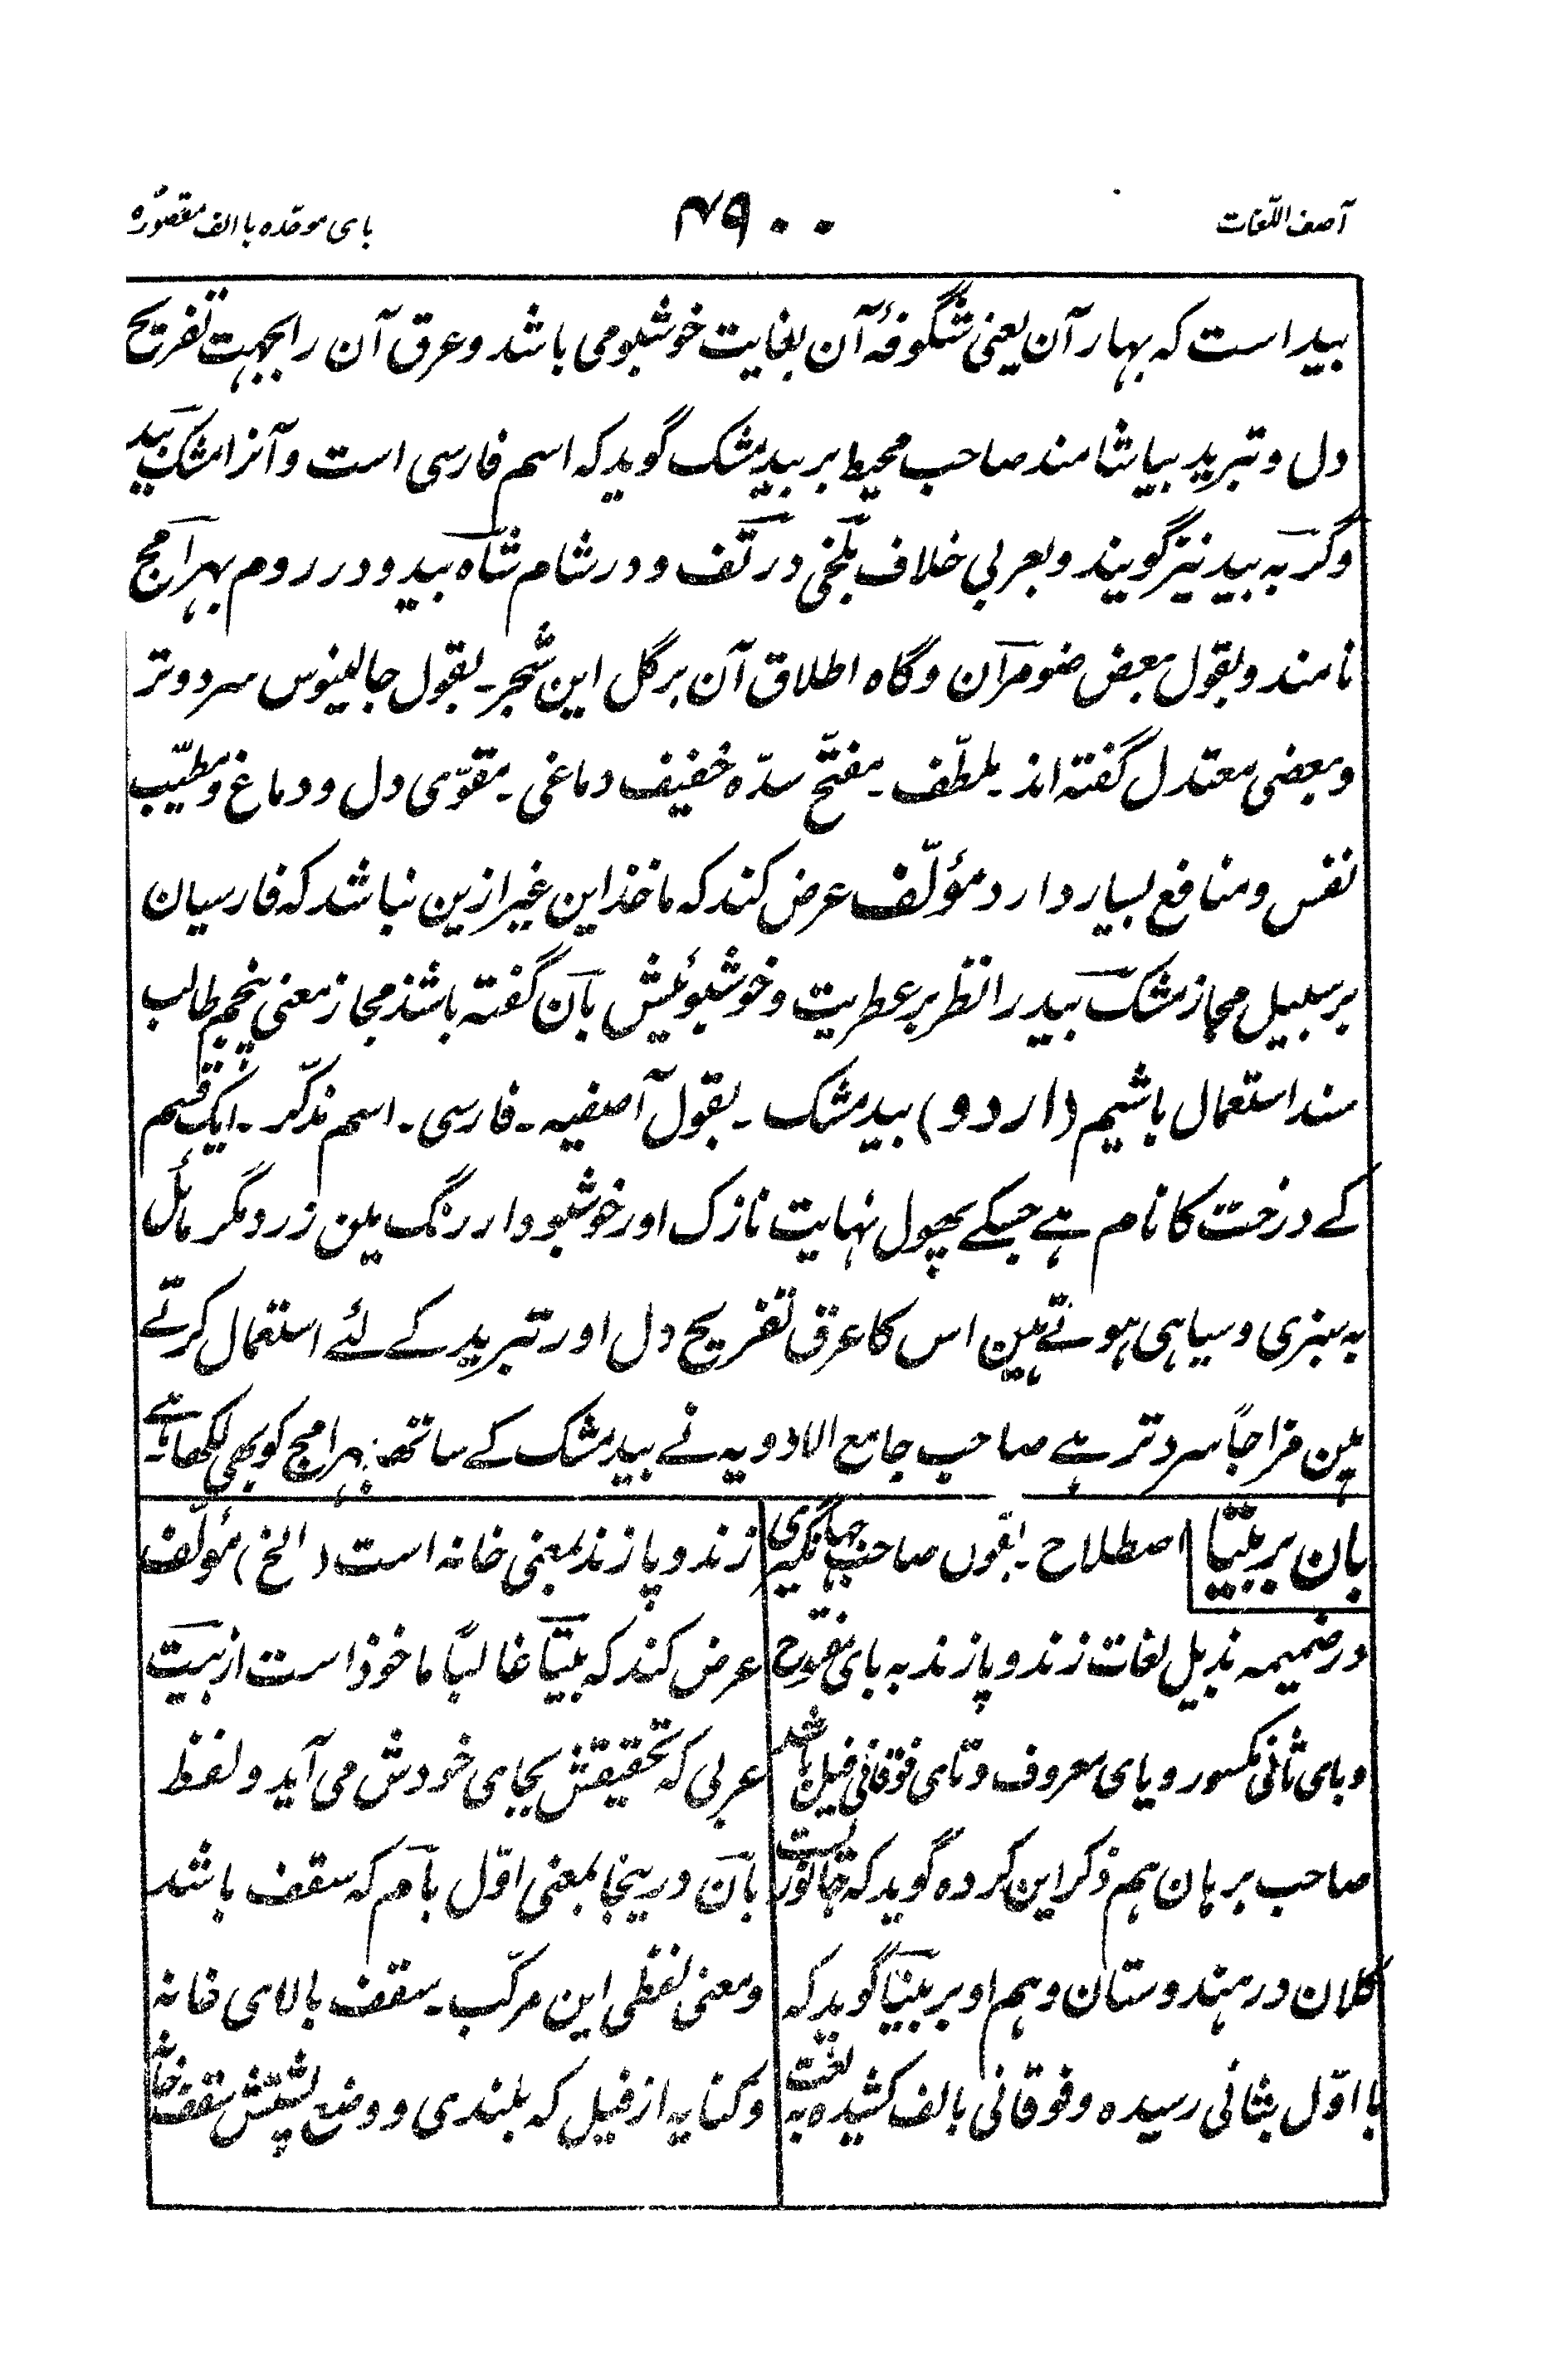 آصف اللّغات
۴۹۰۰
بای موحّده با الف مقصوره
بید است که بهار آن یعنی شگوفۂ آن بغایت خوشبو می باشد و عرق آن را بجهت تفریح
دل و تبرید بیاشامند صاحب محیط بر بید مشک گوید که اسم فارسی است و آنرا مشک بید
و گربه بید نیز گویند و بعربی خلاف بلخی در کتف و در شام شاه بید و در روم بهرامج
نامند و بقول بعض ضومران و گاه اطلاق آن بر گل این شجر ۔ بقول جالینوس سرد و تر
و بعضی معتدل گفته اند ۔ ملطّف ۔ مفتّح سدّه خفیف دماغی ۔ مقوّی دل و دماغ و مطیّب
نفس و منافع بسیار دارد مؤلّف عرض کند که ماخذ این غیر ازین نباشد که فارسیان
بر سبیل مجاز مشک بید را نظر بر عطریت و خوشبوئیش بآن گفته باشند مجاز معنی پنجم طالب
سند استعمال باشیم (اردو) بید مشک ۔ بقول آصفیه ۔ فارسی ۔ اسم مذکّر ۔ ایک قسم
کے درخت کا نام ہے جسکے پھول نہایت نازک اور خوشبودار رنگ مین زرد مگر مائل
به سبزی و سیاہی ہوتے ہین اس کا عرق تفریح دل اور تبرید کے لئے استعمال کرتے
ہین مزاجاً سرد تر ہے صاحب جامع الادویہ نے بید مشک کے ساتھ بہرامج کو بھی لکھا ہے
بان بربیتا اصطلاح ۔ بقول صاحب جہانگیری
در ضمیمه بذیل لغات زند و پازند به بای مفتوح
و بای ثانی مکسور و یای معروف و تای فوقانی فیل باشد
صاحب برہان ہم ذکر این کرده گوید که جانوریست
کلان در ہندوستان و ہم او بر بیتا گوید که
با اوّل بثانی رسیده و فوقانی بالف کشیده به لغت
زند و پازند بمعنی خانه است (الخ) مؤلّف
عرض کند که بیتا غالباً ماخوذ است از بیت
عربی که تحقیقش بجای خودش می آید و لفظ
بان درینجا بمعنی اوّل بام که سقف باشد
و معنی لفظی این مرکّب ۔ سقف بالای خانه
و کنایه از فیل که بلندی و وضع پشتش سقف خانه